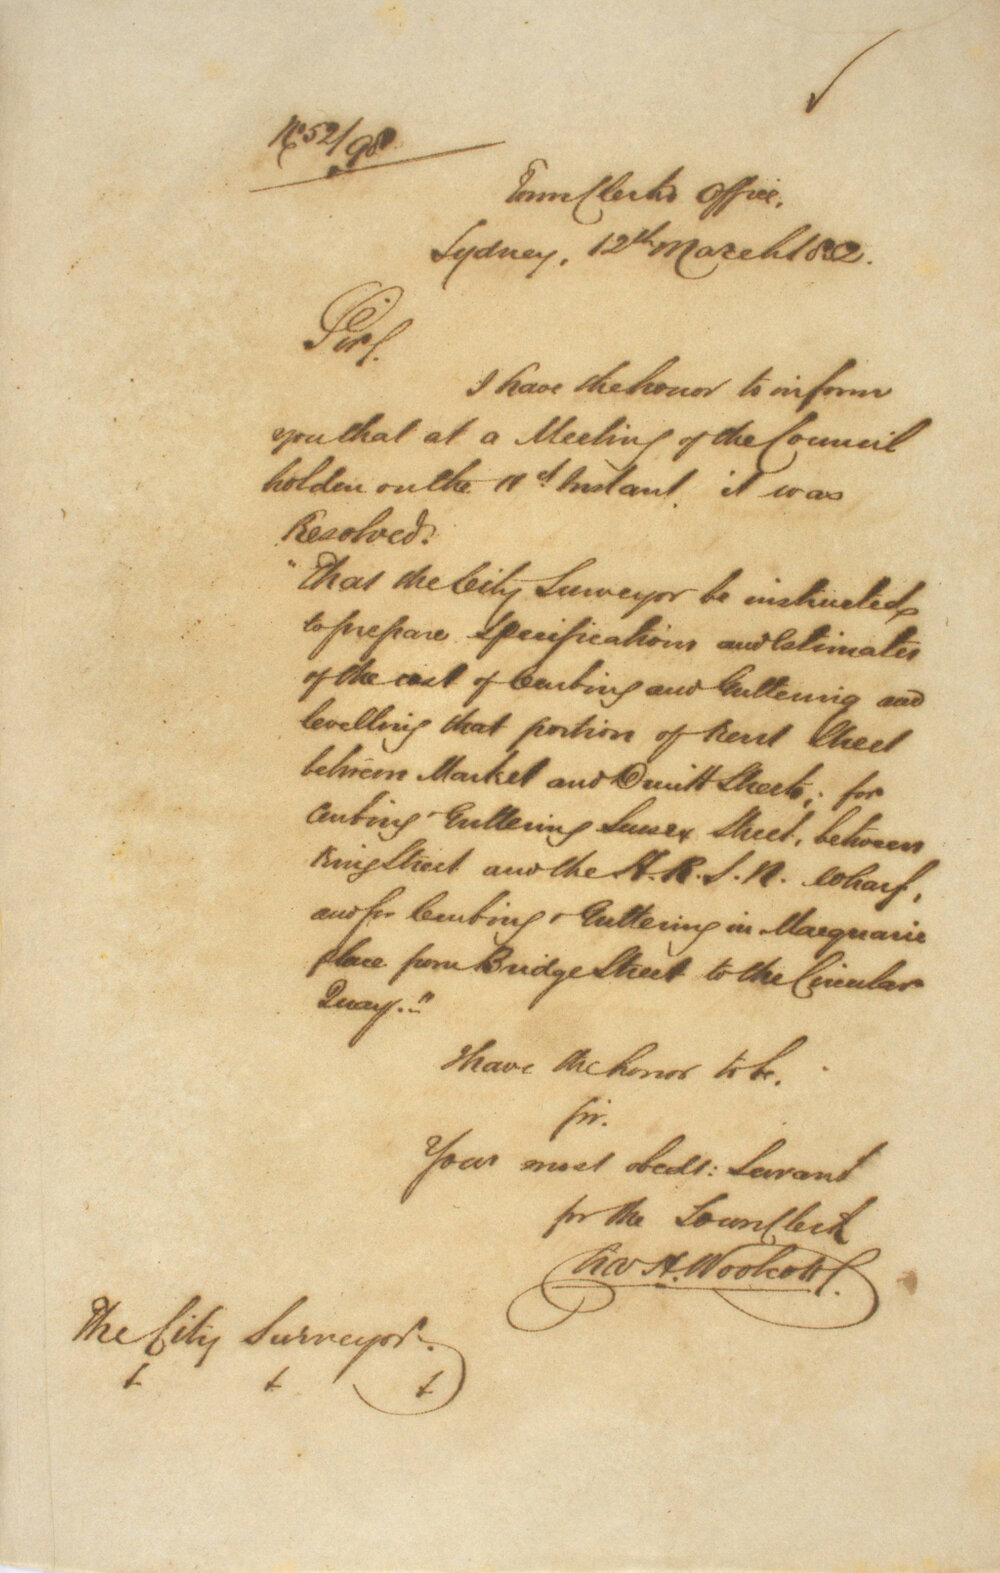 No 52/98
Town Clerk's Office,
Sydney, 12th March 1852.
Sir,
I have the honor to inform
you that at a Meeting of the Council
holden on the 11th Instant, it was
Resolved:
"That the City Surveyor be instructed
to prepare Specifications and Estimates
of the cost of Curbing and Guttering and
levelling that portion of Kent Street
between Market and Druitt Streets; for
Curbing & Guttering Sussex Street, between
King Street and the H. R. S. N. Wharf,
and for Curbing & Guttering in Macquarie
place from Bridge Street to the Circular
Quay."
I have the honor to be,
Sir.
Your most obedt: Servant
for the Town Clerk
Geo H. Woolcott.
The City Surveyor.